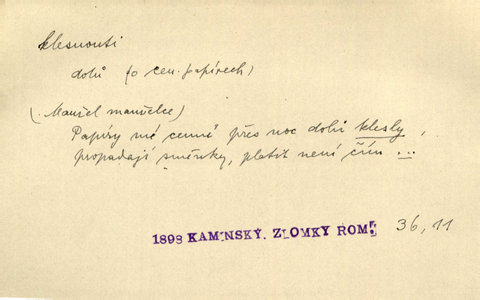 klesnouti
dolů (o cen. papírech)
(Manžel manželce)
Papíry mé cenné přes noc dolů klesly,
propadají směnky, platit není čím ...
1898 KAMINSKÝ. ZLOMKY ROM. 36, 11